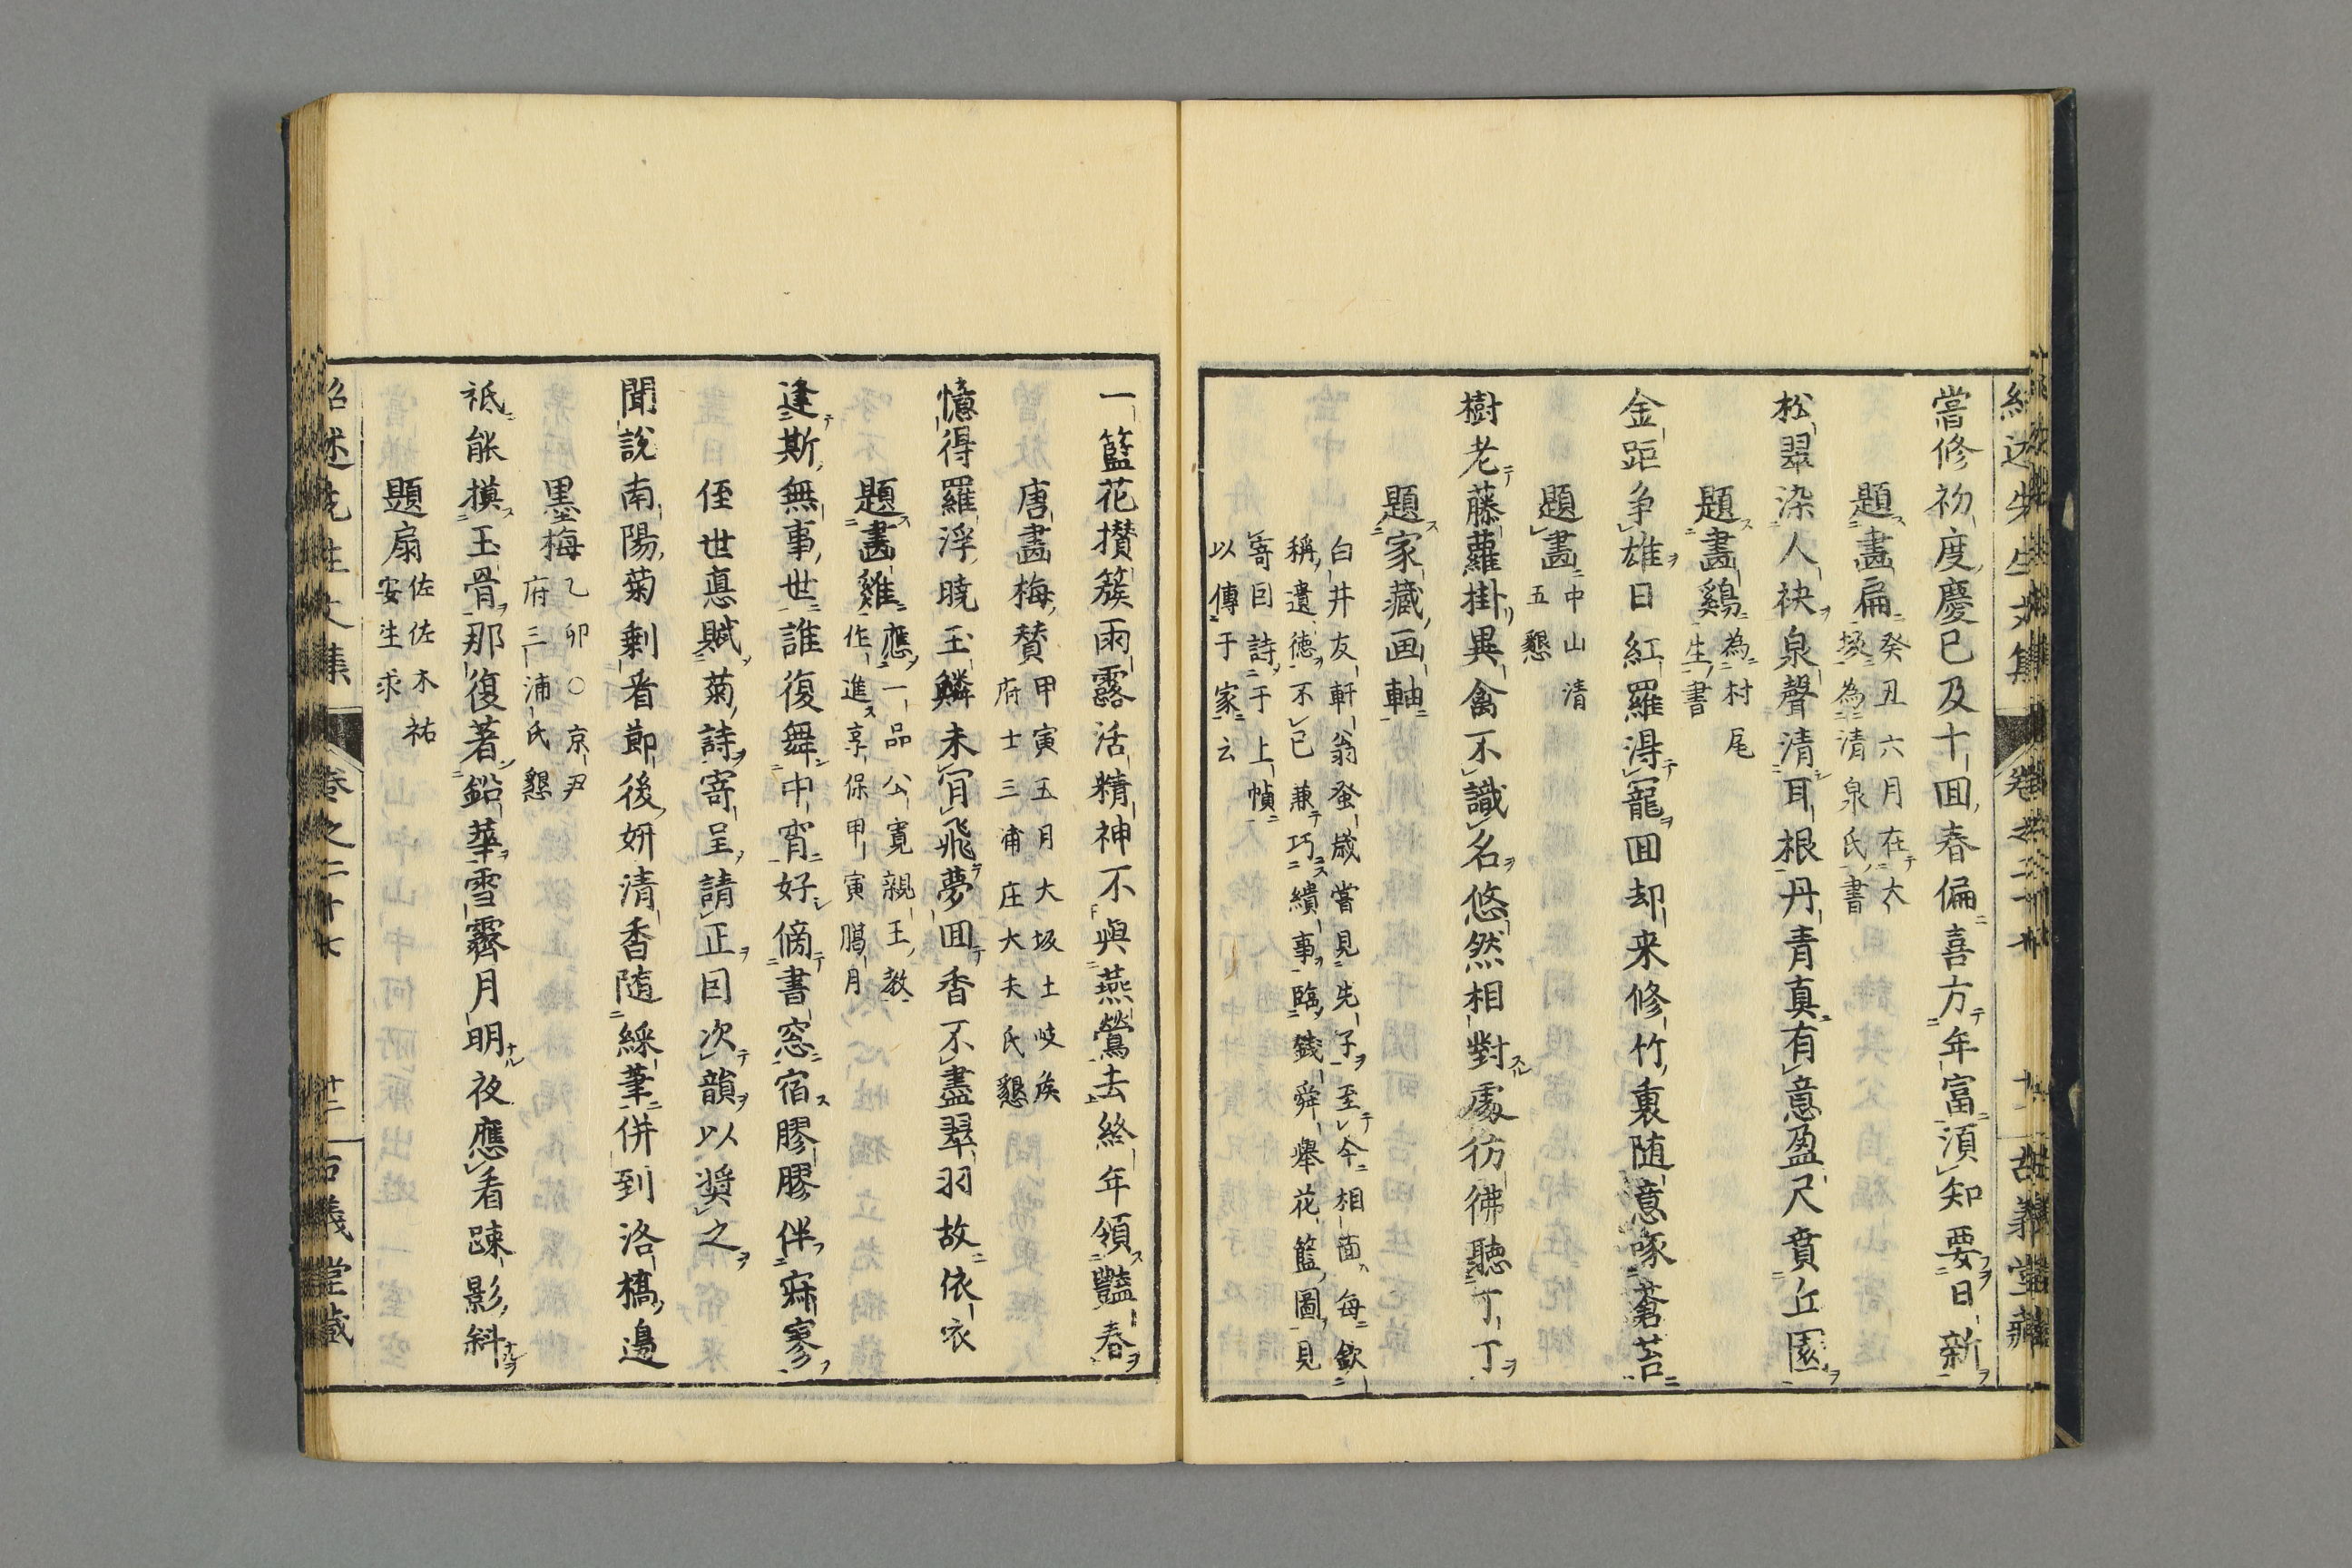 當修初度慶已及十回春偏喜方年富須知要日新
題畫扁癸丑六月在大
坂為清泉氏書
松翠染人袂泉聲清耳根丹青真有意盈尺賁丘園
題畫鷄為村尾
生書
金距争雄日紅羅得寵回却来修竹裏随意啄蒼苔
題畫中山清
五懇
樹老藤蘿掛異禽不識名悠然相對處彷彿聽丁丁
題家藏画軸
白井友軒翁蚤歳嘗見先子至今相面每欽
稱遺徳不已兼巧繢事臨錢舜舉花籃圖見
寄因詩于上幀
以傳于家云
一籃花攅簇雨露活精神不與燕鶯去終年領豔春
唐畵梅賛甲寅五月大坂土岐矦
府士三浦庄大夫氏懇
憶得羅浮曉玉鱗未肎飛夢回香不盡翠羽故依衣
題畵雞應一品公寛親王教
作進享保甲寅臈月
逢斯無事世誰復舞中宵好傍書窓宿膠膠伴寂寥
侄世惪賦菊詩寄呈請正因次韻以奨之
聞說南陽菊剩看節後妍清香随綵筆併到洛橋邊
墨梅乙卯○京尹
府三浦氏懇
祗能摸玉骨那復著鉛華雪霽月明夜應看踈影斜
題扇佐佐木祐
安生求
紹述先生文集 卷之二十七 十二 古義堂藏